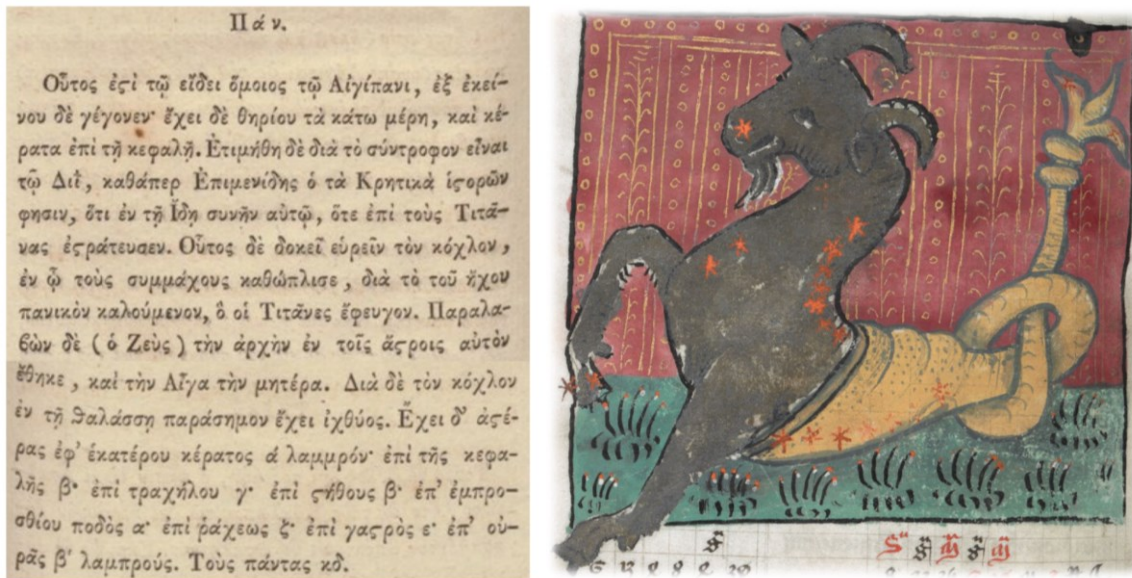 Πάν.
Οὗτος ἐςὶ τῷ εἴδει ὅμοιος τῷ Αἰγίπανι, ἐξ ἐκεί-
νου δὲ γέγονεν· ἔχει δὲ θηρίου τὰ κάτω μέρη, καὶ κέ-
ρατα ἐπὶ τῇ κεφαλῇ. Ετιμήθη δὲ διὰ τὸ σύντροφον εἶναι
τῷ Διῒ, καθάπερ Επιμενίδης ὁ τὰ Κρητικὰ ἱςορῶν
φησιν, ὅτι ἐν τῇ Ιδῃ συνῆν αὐτῷ, ὅτε ἐπὶ τοὺς Τιτᾶ-
νας ἐςράτευσεν. Οὗτος δὲ δοκεῖ εὑρεῖν τὸν κόχλον,
ἐν ᾧ τοὺς συμμάχους καθώπλισε, διὰ τὸ τοῦ ἤχου
πανικὸν καλούμενον, ὃ οἱ Τιτᾶνες ἔφευγον. Παραλα-
βὼν δὲ (ὁ Ζεὺς) τὴν ἀρχὴν ἐν τοῖς ἄςροις αὐτὸν
ἔθηκε, καὶ τὴν Αἶγα τὴν μητέρα. Διὰ δὲ τὸν κόχλον
ἐν τῇ θαλάσσῃ παράσημον ἔχει ἰχθύος. Ἔχει δ' ἀςέ-
ρας ἐφ' ἑκατέρου κέρατος ά λαμμρόν· ἐπὶ τῆς κεφα-
λῆς β· ἐπὶ τραχήλου γ· ἐπὶ ςήθους β· ἐπ' ἐμπρο-
σθίου ποδὸς α· ἐπὶ ῥάχεως ζ· ἐπὶ γαςρὸς ε· ἐπ' οὐ-
ρᾶς β' λαμπρούς. Τοὺς πάντας κδ.